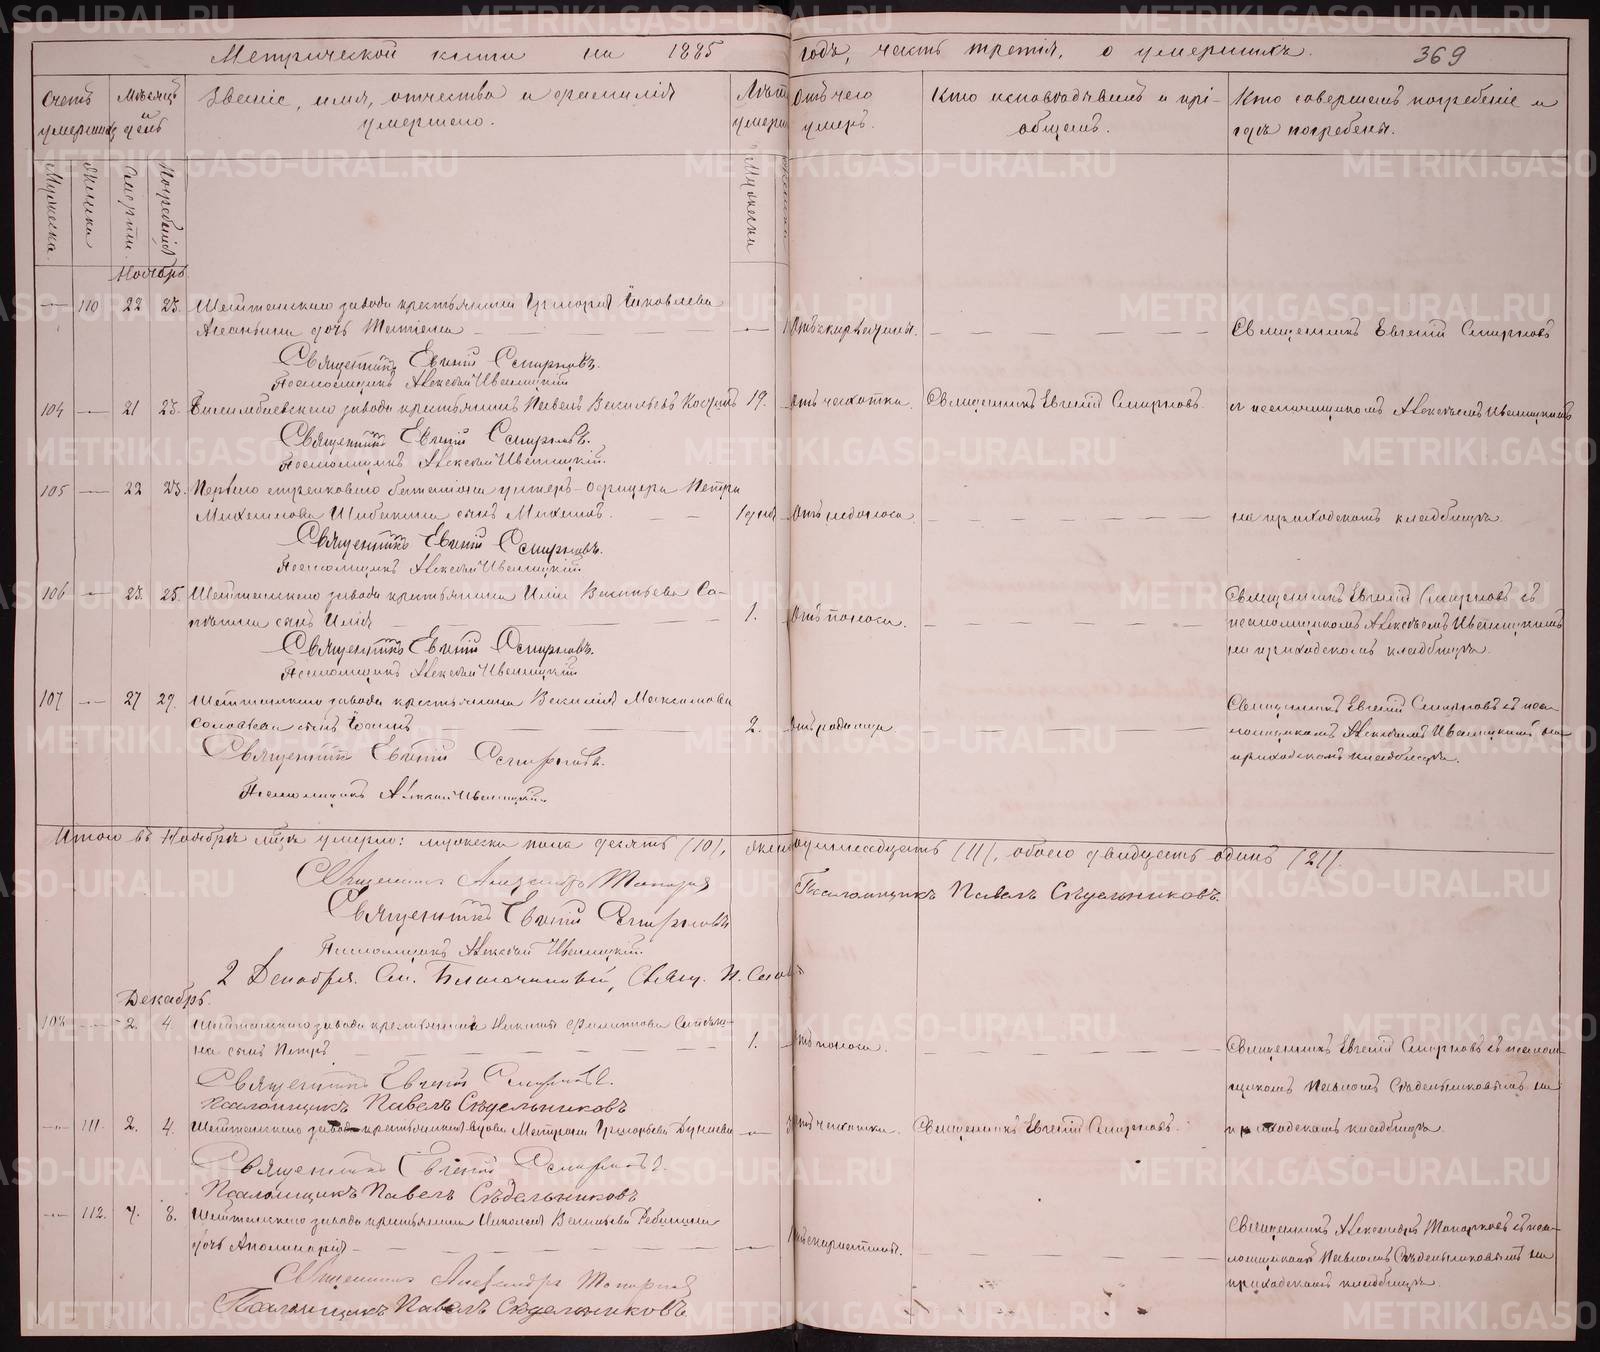 Метрической книги на 1885 годъ, часть третія, о умершихъ. 369
Счетъ умершихъ
Мѣсяцъ и день
Званіе, имя, отчество и фамилія умершаго.
Лѣта умершаго
Отъ чего умеръ.
Кто исповѣдывалъ и пріобщалъ.
Кто совершалъ погребеніе и гдѣ погребены.
Мужеска.
Женска
Смерти.
Погребенія
Мужеска
Женска
Ноябрь
— 110 22 23. Шайтанскаго завода крестьянина Григорія Яковлева
Ананьина дочь Татіана — — Отъ скарлатины. — — — — Священникъ Евгеній Смирновъ
Священникъ Евгеній Смирновъ.
Псаломщикъ Алексѣй Ивановъ
104 — 21 23. Билимбаевскаго завода крестьянинъ Павелъ Васильевъ 19. — Отъ чахотки. Священникъ Евгеній Смирновъ. съ псаломщикомъ Алексѣемъ
Священникъ Евгеній Смирновъ.
Псаломщикъ Алексѣй
105 — 22 23. Перваго стрѣлковаго баталіона унтеръ-офицера Петра
Михаилова Шибакина сынъ Михаилъ. — — — — — — — на приходскомъ кладбищѣ.
Священникъ Евгеній Смирновъ.
Псаломщикъ Алексѣй
106 — 23. 25. Шайтанскаго завода крестьянина Иліи Васильева Са-
сынъ Илія — — — 1. Отъ поноса. — — — — —
Священникъ Евгеній Смирновъ съ
псаломщикомъ Алексѣемъ
на приходскомъ кладбищѣ.
Священникъ Евгеній Смирновъ.
Псаломщикъ Алексѣй
107 — 27 29. Шайтанскаго завода крестьянина Василія Максимова
Соловьева сынъ Іоаннъ — — — 2. Отъ родимца — — — —
Священникъ Евгеній Смирновъ съ пса-
ломщикомъ Алексѣемъ на
приходскомъ кладбищѣ.
Священникъ Евгеній Смирновъ.
Псаломщикъ Алексѣй
Итого въ Ноябрѣ мѣсяцѣ умерло: мужеска пола десять (10), женска одиннадцать (11), обоего двадцать одинъ (21).
Священникъ Александръ Топорковъ
Псаломщикъ Павелъ Сѣдельниковъ.
Священникъ Евгеній Смирновъ
Псаломщикъ Алексѣй
2 Декабря. См. Благочинный, Свящ. П.
Декабрь.
108 — 2. 4. Шайтанскаго завода крестьянина Никиты Филиппова
на сынъ Петръ — — — 1. — Отъ поноса. — — — —
Священникъ Евгеній Смирновъ съ псалом-
щикомъ Павломъ Сѣдельниковымъ на
Священникъ Евгеній Смирновъ.
Псаломщикъ Павелъ Сѣдельниковъ
— 111. 2. 4. Шайтанскаго завода крестьянская вдова Матрона Григорьева — Отъ чахотки. Священникъ Евгеній Смирновъ. приходскомъ кладбищѣ.
Священникъ Евгеній Смирновъ.
Псаломщикъ Павелъ Сѣдельниковъ
— 112. 7. 8. Шайтанскаго завода крестьянина Николая Васильева
дочь Аполинарія — — — — Отъ скарлатины. — — — —
Священникъ Александръ Топорковъ съ пса-
ломщикомъ Павломъ Сѣдельниковымъ на
приходскомъ кладбищѣ.
Священникъ Александръ Топорковъ
Псаломщикъ Павелъ Сѣдельниковъ.
METRIKI.GASO-URAL.RU